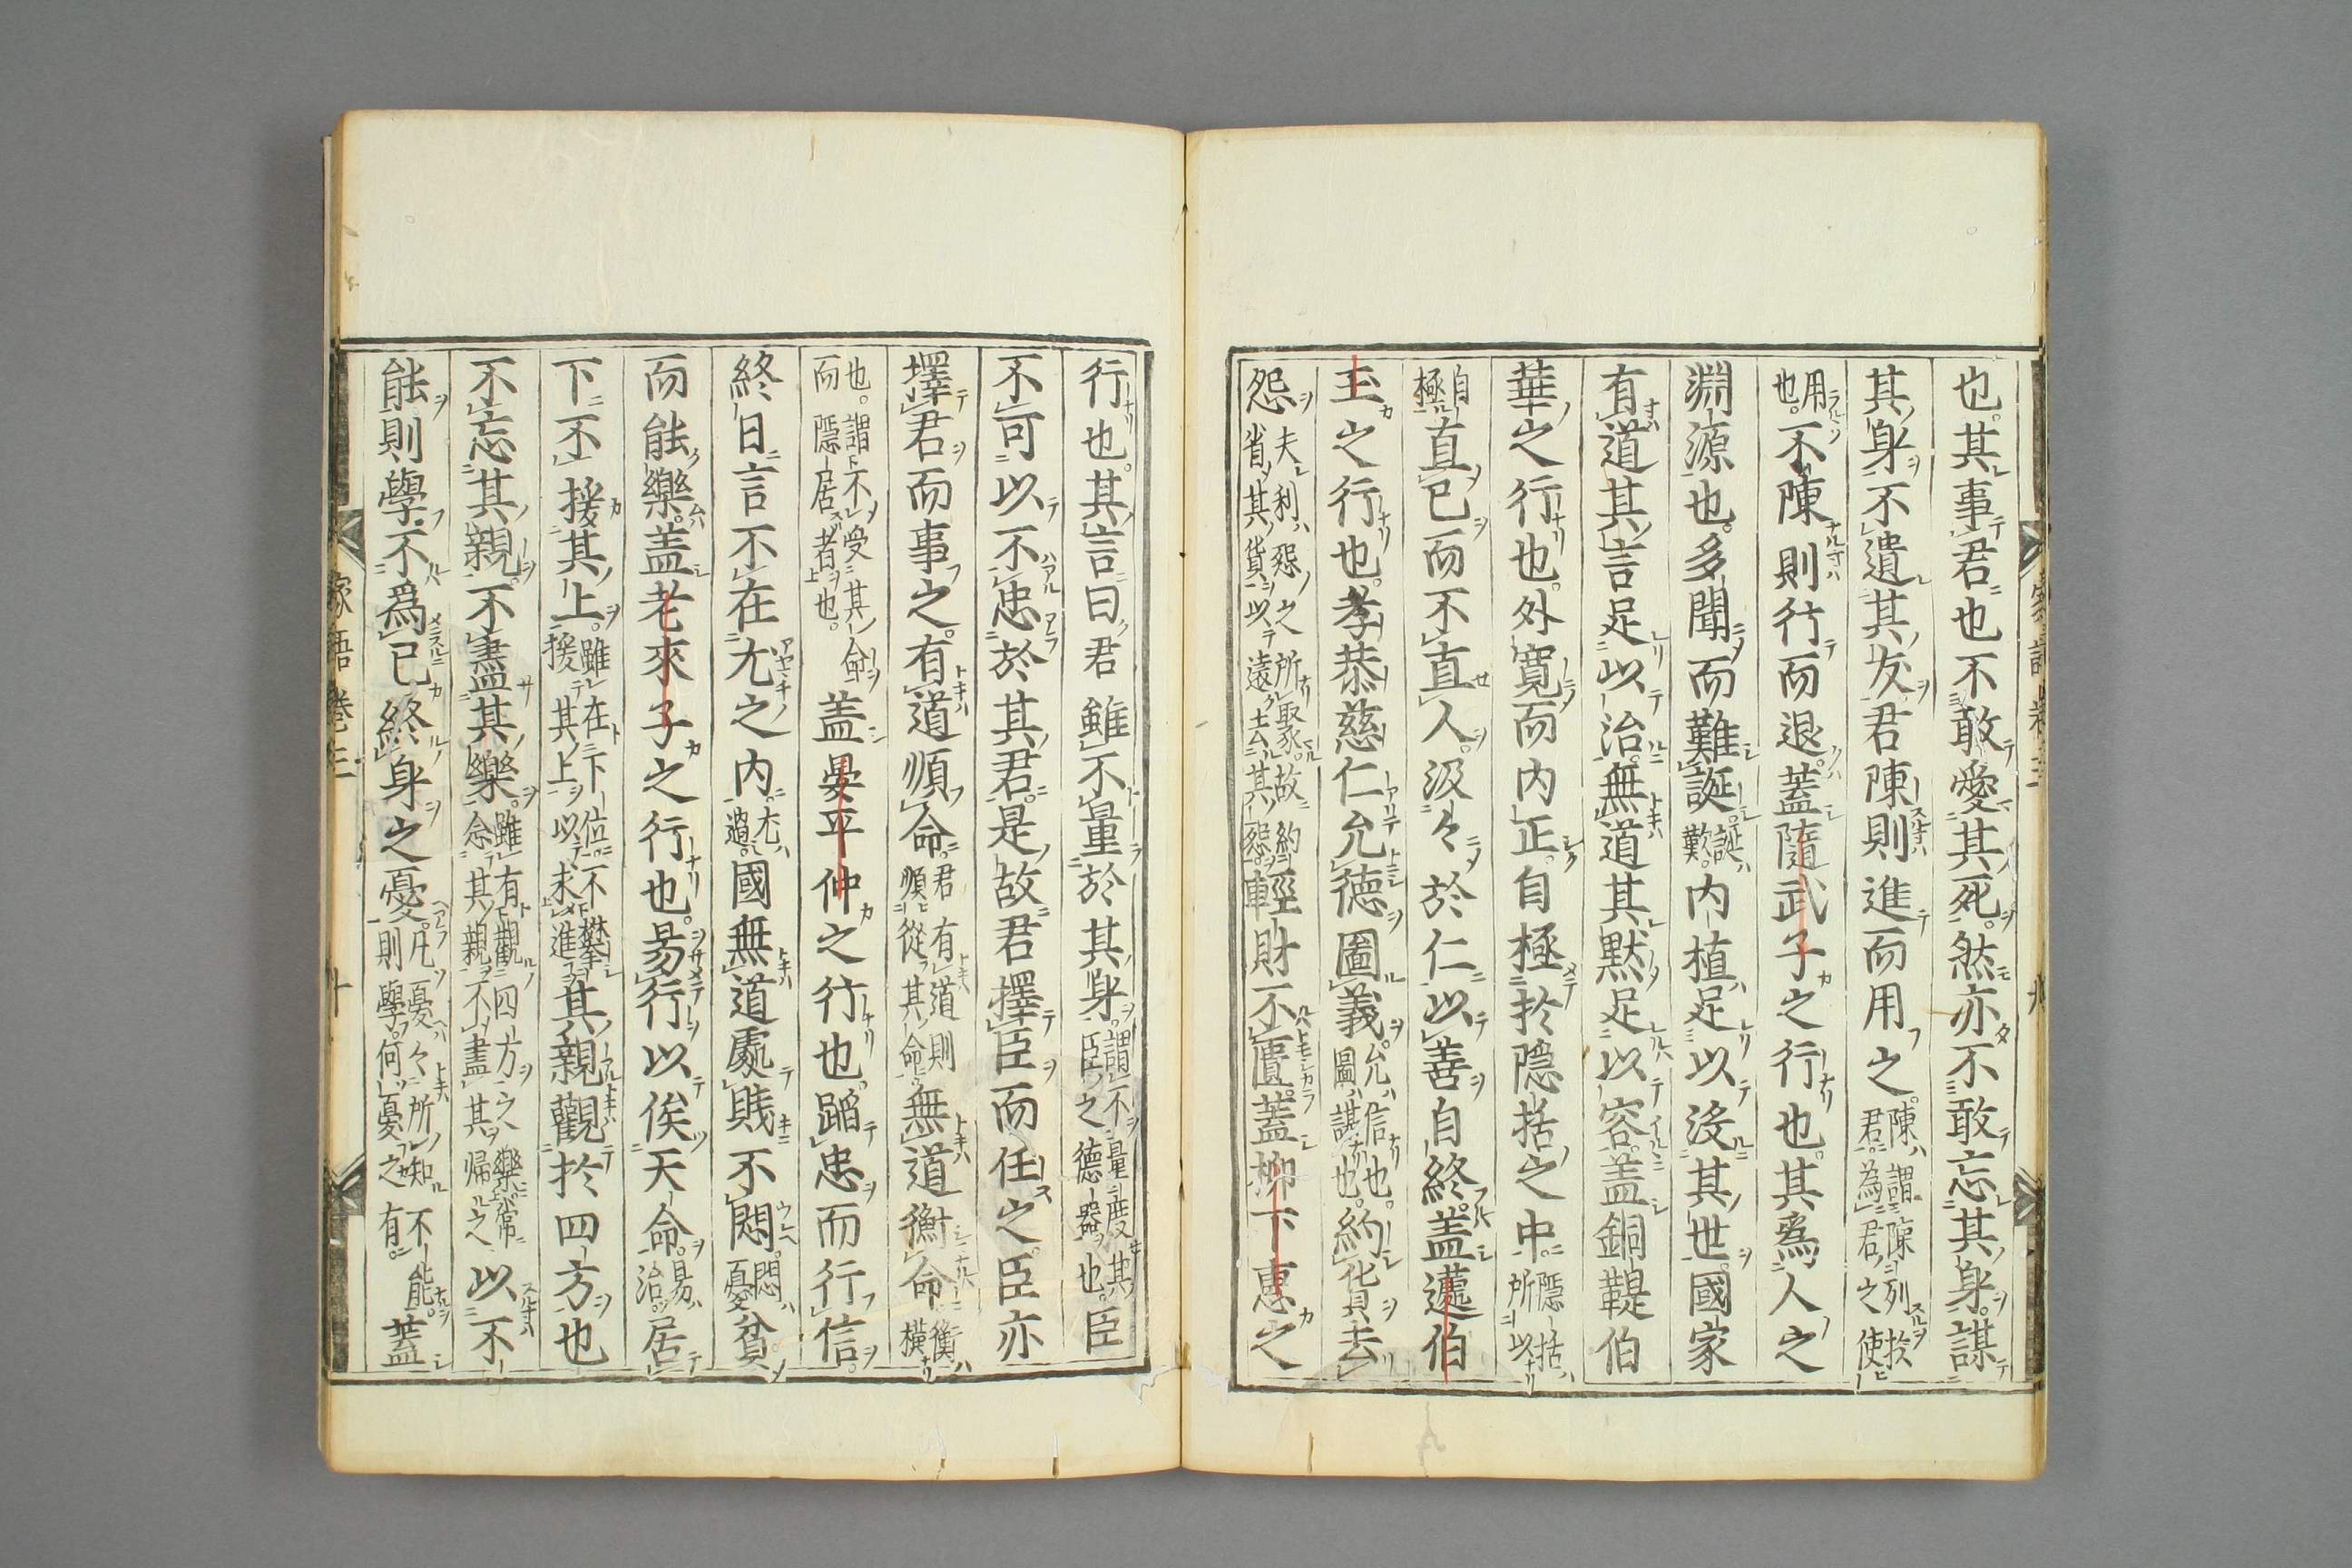 也。其事君也不敢愛其死。然亦不敢忘其身。謀
其身不遺其友君陳則進而用之。陳謂陳列於君。為君之使
用也。不陳則行而退。蓋隨武子之行也。其爲人之
淵源也。多聞而難誕。誕欺。内植足以没其世。國家
有道其言足以治。無道其默足以容。盖銅鞮伯
華之行也。外寛而内正。自極於隱括之中。隱括所以
自極直己而不直人。汲々於仁以善自終。盖蘧伯
玉之行也。孝恭慈仁允德圖義。允信也。圖謀也。約貨去
怨夫利怨之所聚。故約省其貨以遠去其怨。輕財不匱。蓋柳下惠之
行也。其言曰君雖不量於其身。謂不量度其臣之德器也。臣
不可以不忠於其君。是故君擇臣而任之。臣亦
擇君而事之。有道順命。君有道則順從其命。無道衡命衡横
也。謂不受其命而隱居者也。盖晏平仲之行也。蹈忠而行信。
終日言不在尤之内。尤過。國無道處賤不悶。悶憂貧
而能樂。盖老來子之行也。易行以俟天命。易治居
下不援其上。雖在下位不攀援其上以求進其親觀於四方也
不忘其親。不盡其樂。雖有觀四方之樂常念其親不盡其歸之以不
能則學。不爲己終身之憂。凡憂々所知不能。則學。何憂之有。蓋
家語卷三
九
家語卷三
十